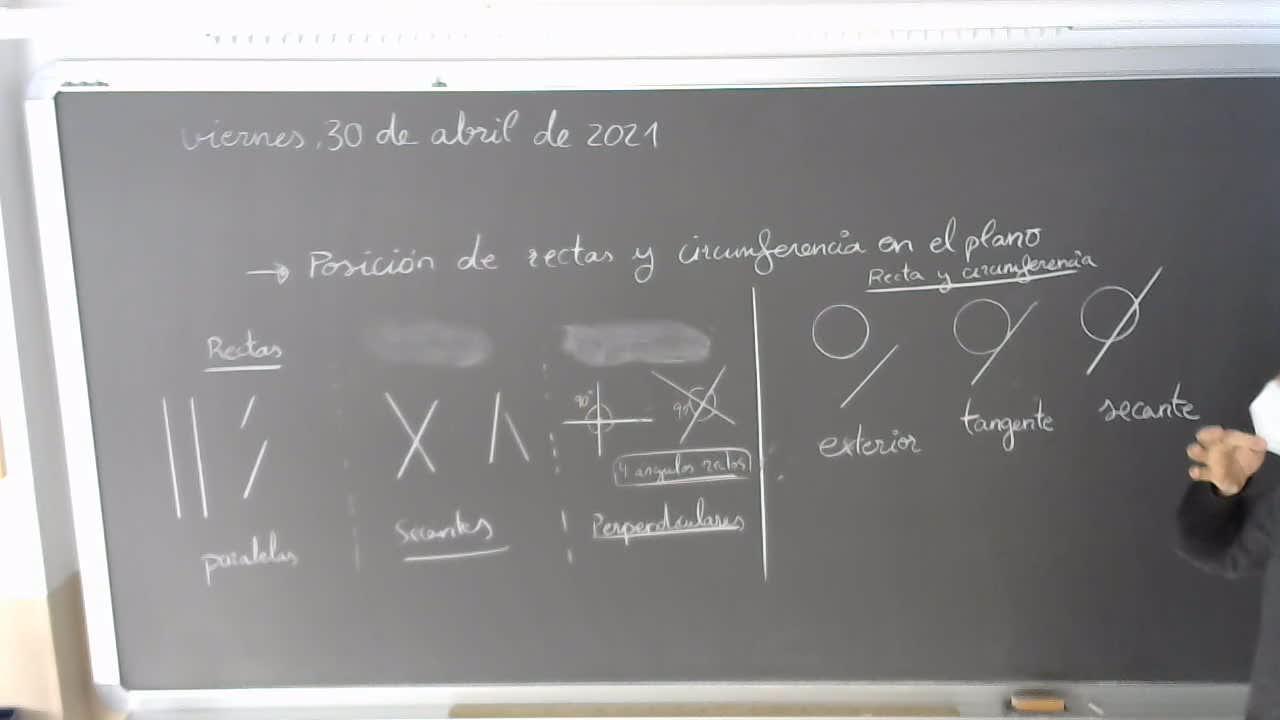 viernes, 30 de abril de 2021
→ Posición de rectas y circumferencia en el plano
Recta y circumferencia
Rectas
90°
90°
4 angulos rectos
exterior
tangente
secante
paralelas
Secantes
Perpendiculares